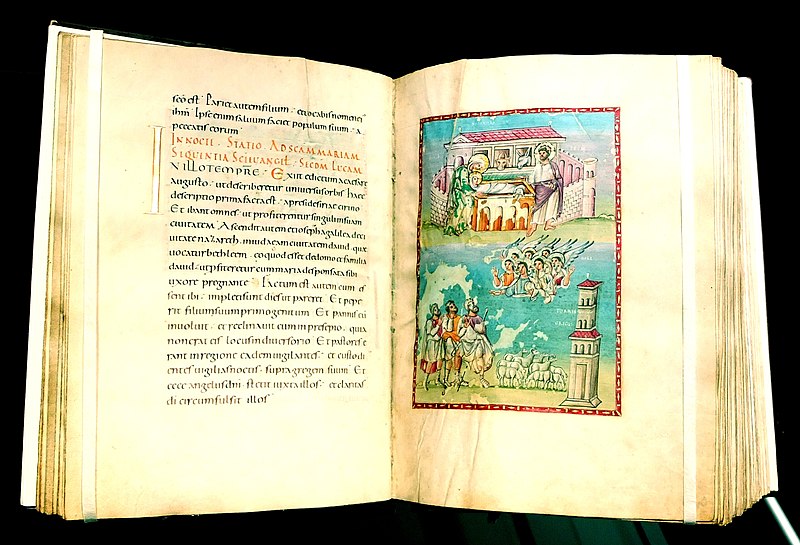 seos est. Pariet autem filium. et vocabis nomen eius
ihm. Ipse enim salvum faciet populum suum. a
peccatis eorum.
IN NOCTE. STATIO AD SCAM MARIAM
SEQUENTIA SCI EUANGEL. SECDM LUCAM
IN ILLO TEMPRE. Exiit edictum a caesare
augusto. ut describeretur universus orbis. haec
descriptio prima facta est. a preside siriae cirino
Et ibant omnes. ut profiterentur singuli in suam
civitatem. Ascendit autem et ioseph a galilea de ci
vitate nazareth. in iudaeam civitatem david. quae
vocatur bethleem. eo quod esset de domo et familia
david. ut profiteretur cum maria desponsata sibi
uxore pregnante. Factum est autem cum es
sent ibi. impleti sunt dies ut pareret. Et pepe
rit filium suum primogenitum. Et pannis eum
involuit. et reclinavit eum in presepio. quia
non erat eis locus in diversorio. Et pastores e
rant in regione eadem vigilantes. et custodi
entes vigilias noctis. supra gregem suum. Et
ecce angelus dni stetit iuxta illos. et claritas
di circumfulsit illos